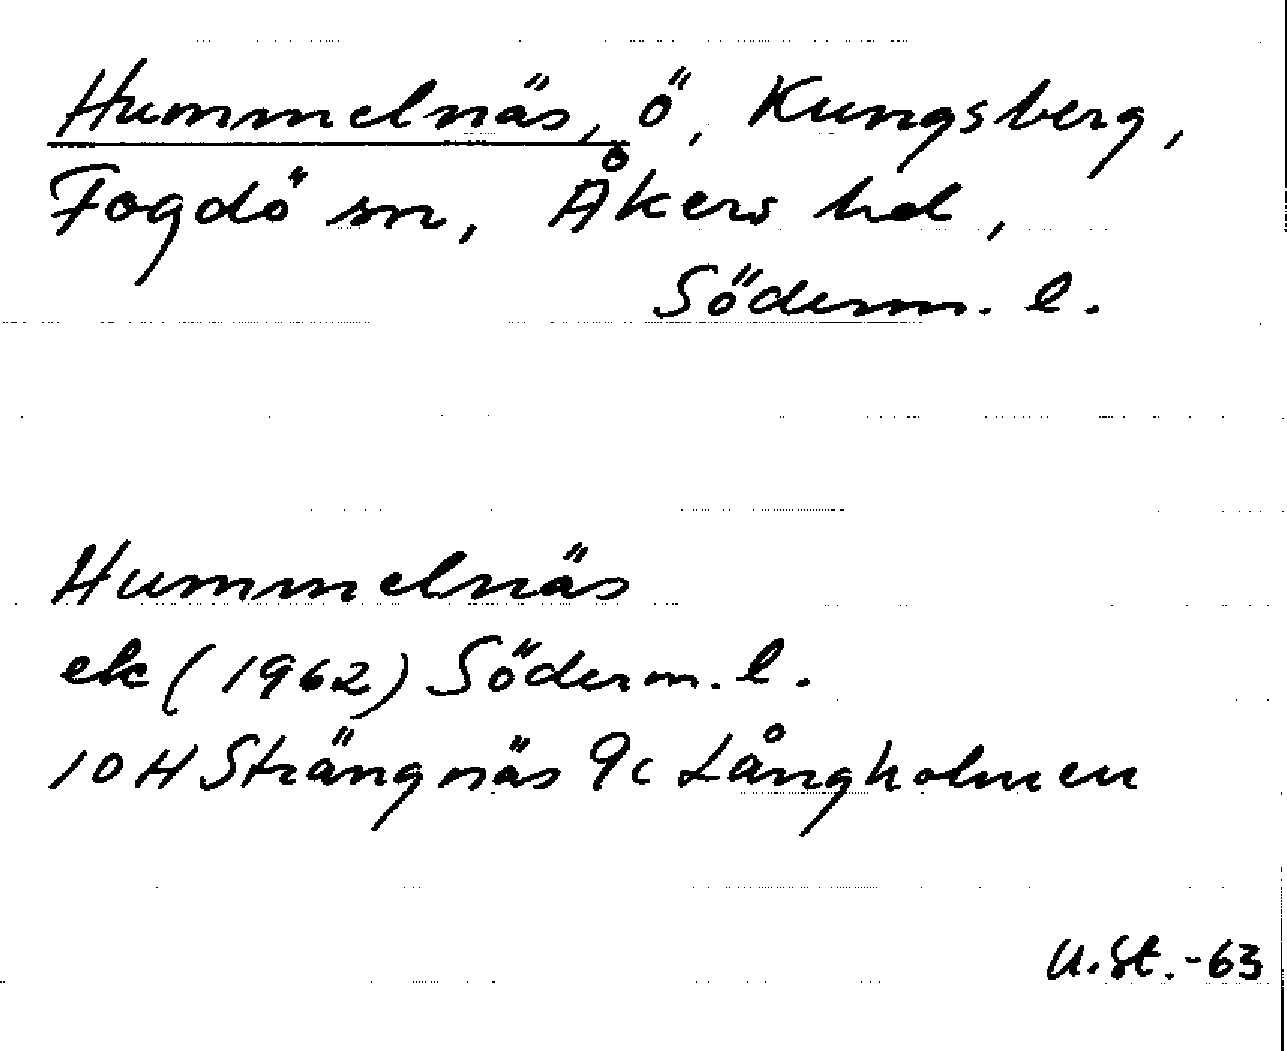 Hummelnäs, ö, Kungsberg,
Fogdö sn, Åkers hd,
Söderm. l.
Hummelnäs
ek (1962) Söderm. l.
10H Strängnäs 9c Långholmen
U.St.-63